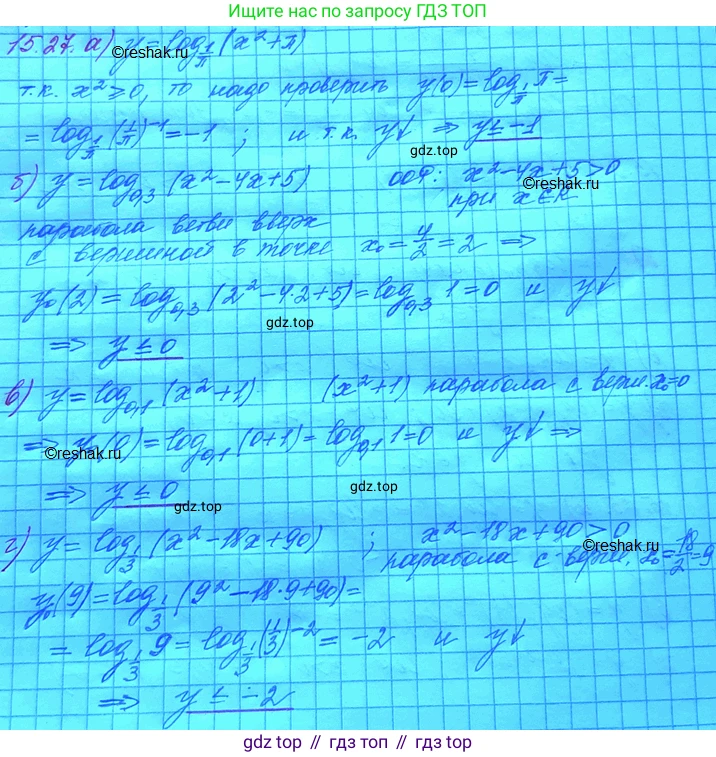 Ищите нас по запросу ГДЗ ТОП
15.27. а) y = log_{1/π} (x² + π)
©reshak.ru
т.к. x² ≥ 0, то надо проверить y(0) = log_{1/π} π =
= log_{1/π} (1/π)^{-1} = -1 ; и т.к. y↓ ⇒ y ≤ -1
gdz.top
б) y = log_{0,3} (x² - 4x + 5) ООФ: x² - 4x + 5 > 0
©reshak.ru
при x ∈ R
парабола ветви вверх
с вершиной в точке x₀ = 4/2 = 2 ⇒
y₀(2) = log_{0,3} (2² - 4·2 + 5) = log_{0,3} 1 = 0 и y↓
gdz.top
⇒ y ≤ 0
в) y = log_{0,1} (x² + 1) (x² + 1) парабола с верш. x₀ = 0
⇒ y₀(0) = log_{0,1} (0 + 1) = log_{0,1} 1 = 0 и y↓ ⇒
©reshak.ru
⇒ y ≤ 0
gdz.top
gdz.top
г) y = log_{1/3} (x² - 18x + 90) ; x² - 18x + 90 > 0
©reshak.ru
парабола с верш. x₀ = 18/2 = 9
y₀(9) = log_{1/3} (9² - 18·9 + 90) =
= log_{1/3} 9 = log_{1/3} (1/3)^{-2} = -2 и y↓
⇒ y ≤ -2
gdz.top // гдз топ // gdz.top